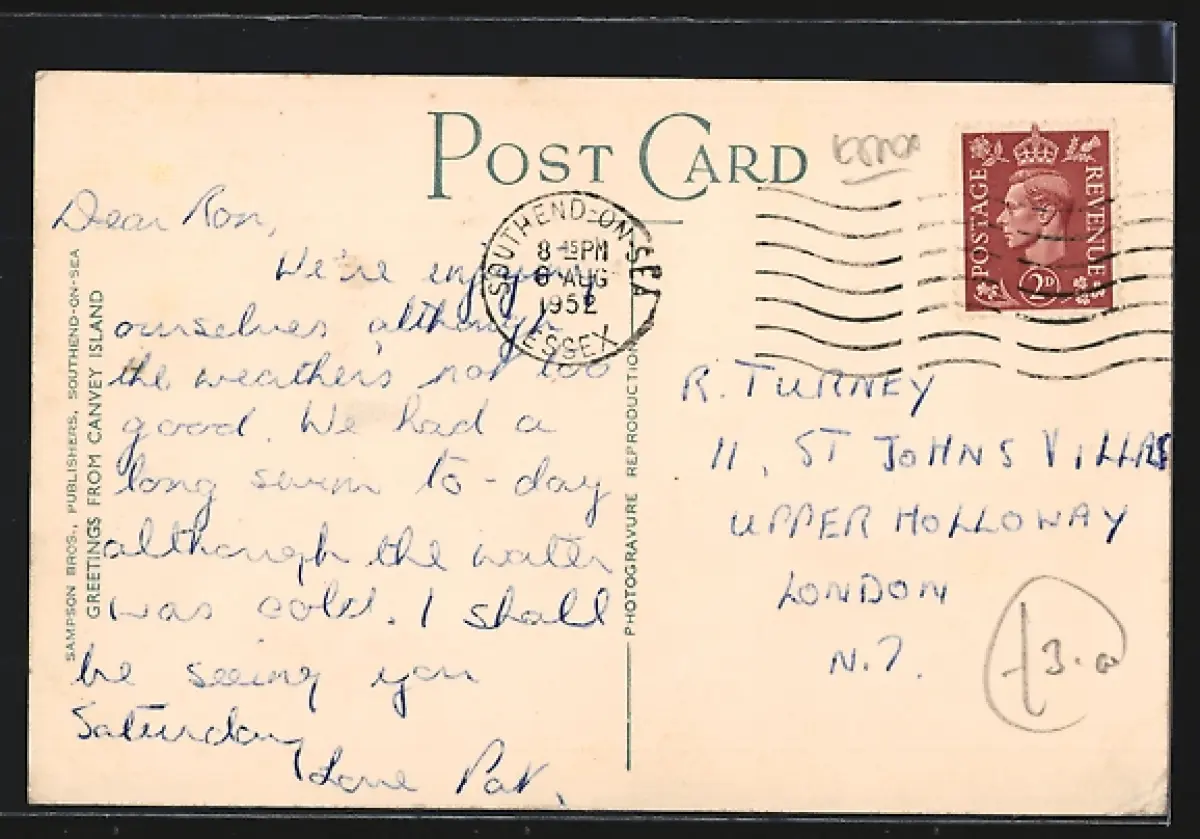 POST CARD
Essex
SOUTHEND-ON-SEA
8 45 PM
6 AUG
1952
ESSEX
POSTAGE
REVENUE
2D
Dear Ron,
We're enjoying
ourselves although
the weather's not too
good. We had a
long swim to-day
although the water
was cold. I shall
be seeing you
Saturday
Love Pat.
R. TURNEY
11, ST JOHNS VILLAS
UPPER HOLLOWAY
LONDON
N.7.
SAMPSON BROS., PUBLISHERS, SOUTHEND-ON-SEA
GREETINGS FROM CANVEY ISLAND
PHOTOGRAVURE REPRODUCTION